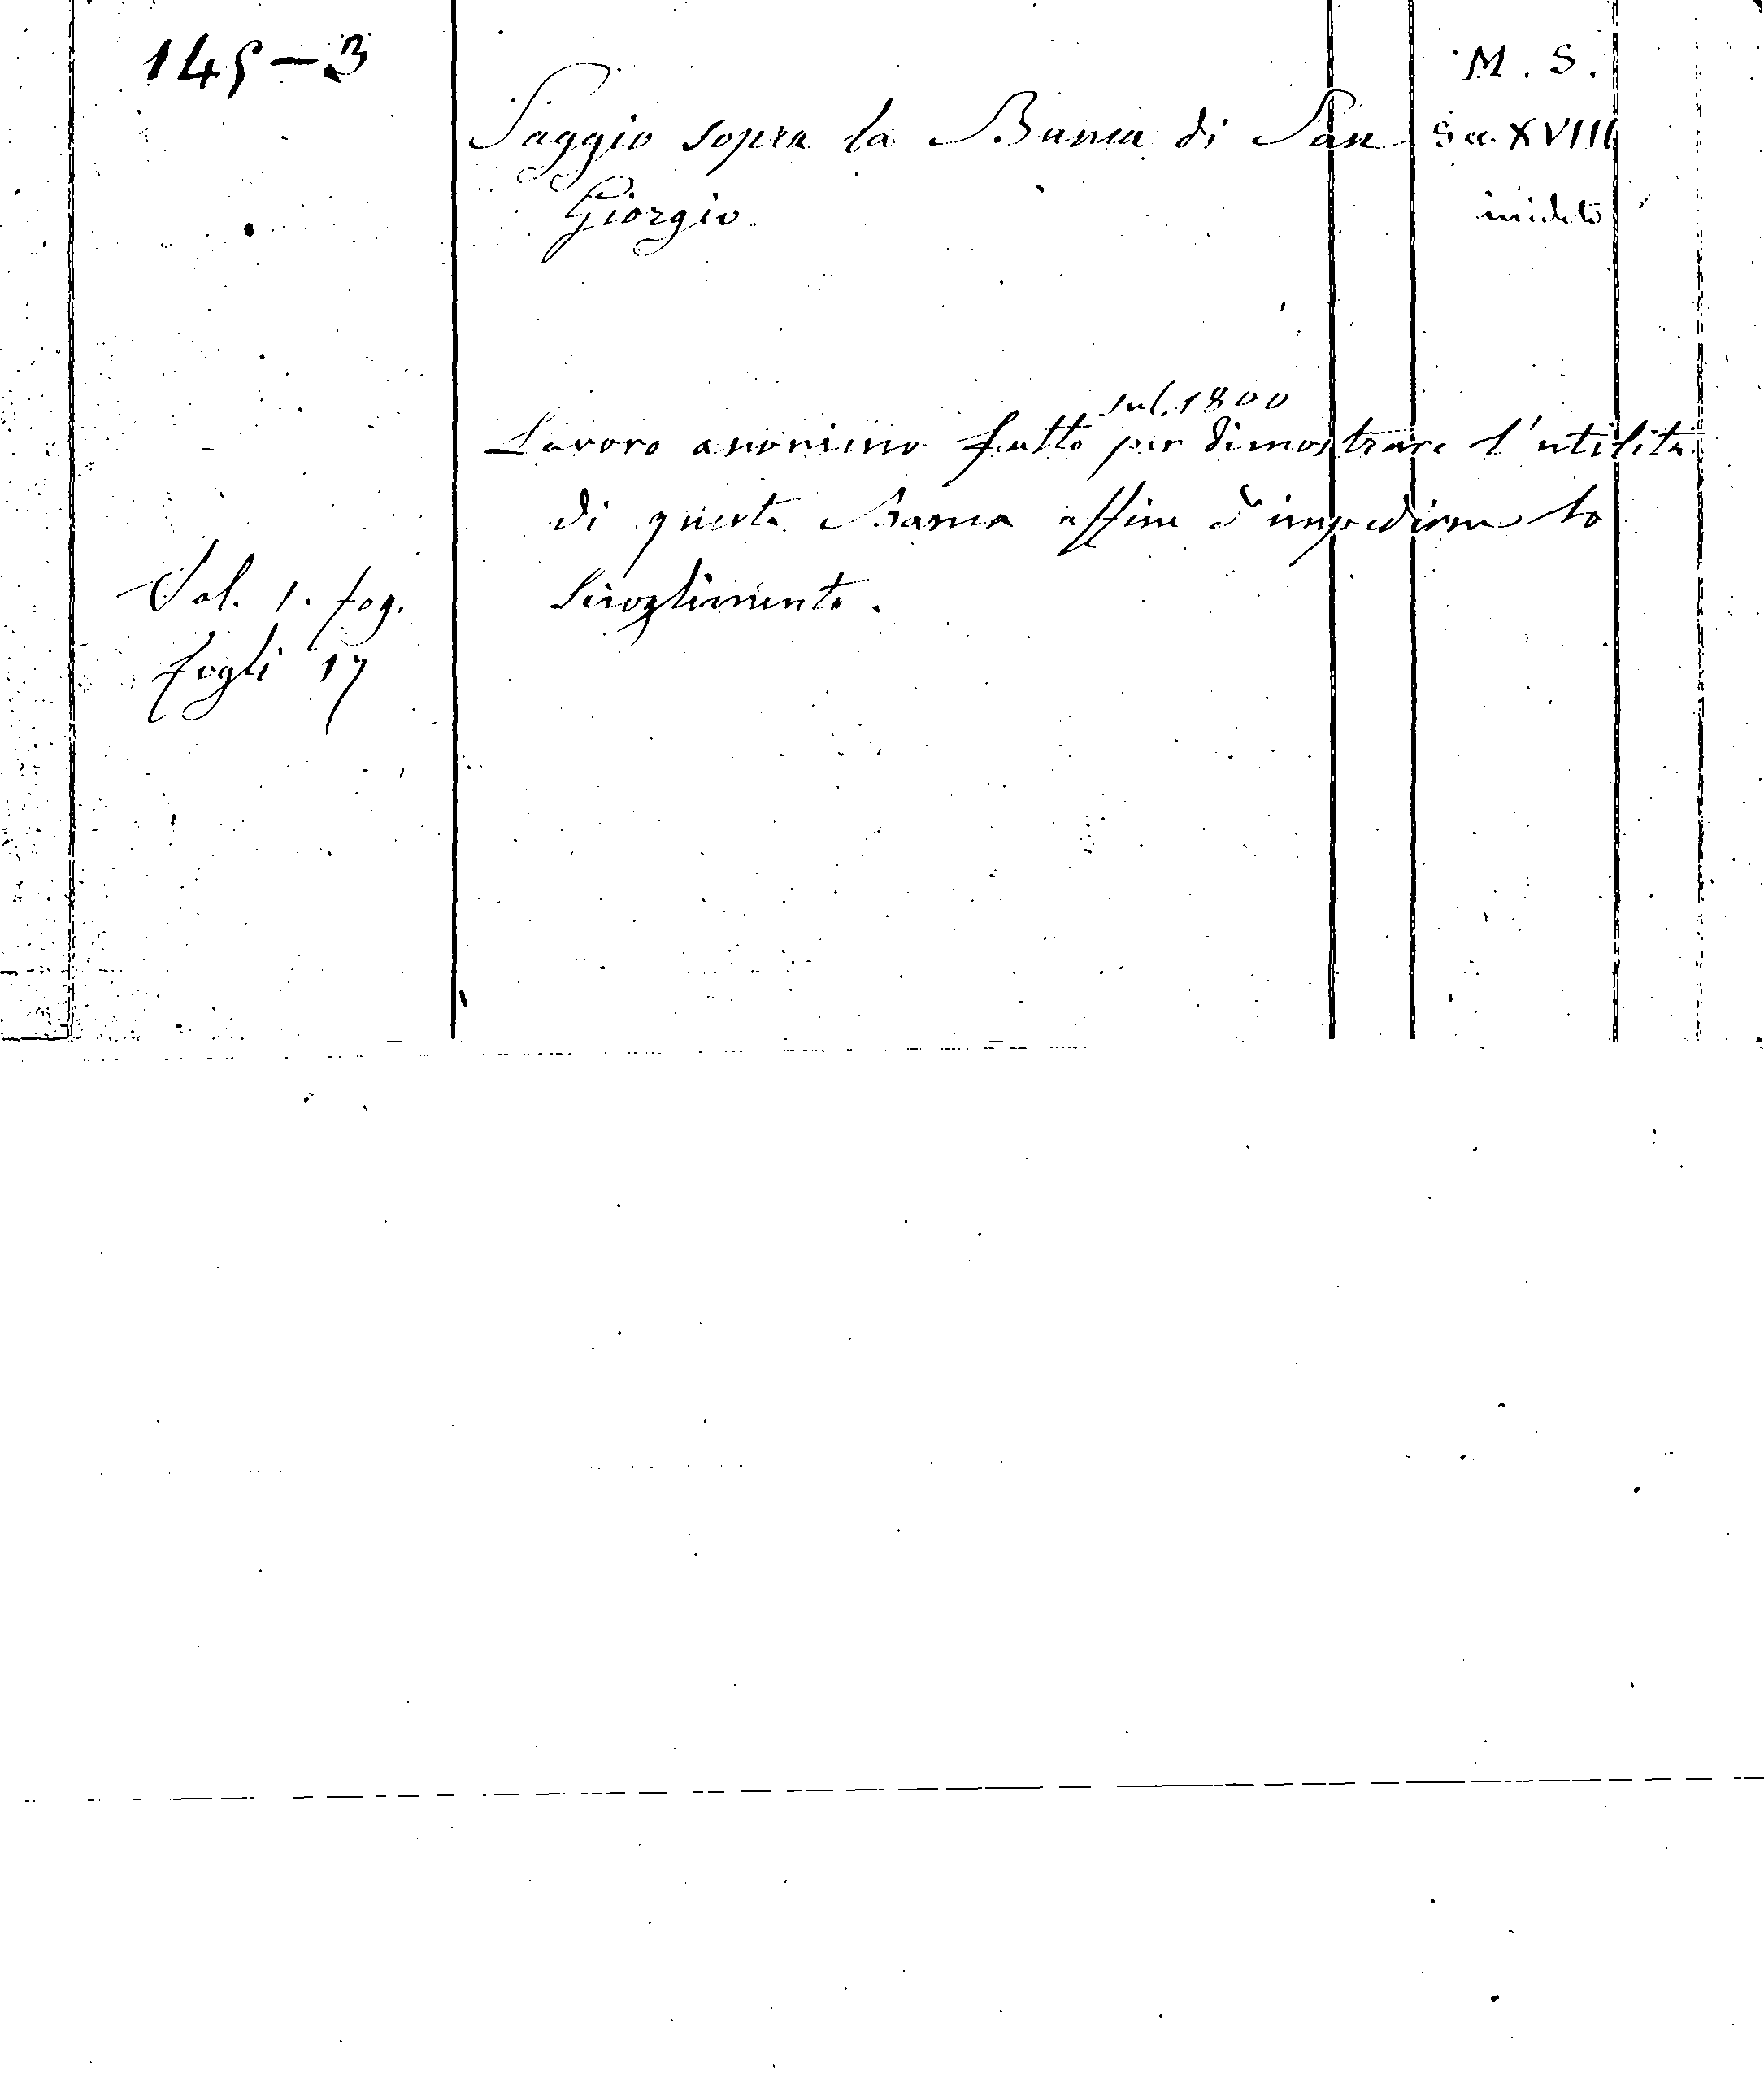 145-3
M. S.
Saggio sopra la Banca di San
Sec. XVIII
Giorgio.
inedito
sul 1800
Lavoro anonimo fatto per dimostrare l'utilità
di questa Banca affine d'impedirne lo
Scioglimento.
Vol. 1. fog.
fogli 17